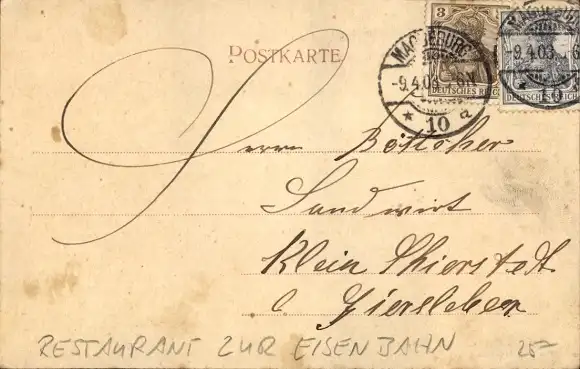 POSTKARTE
3
DEUTSCHES REICH
DEUTSCHES REICH
MAGDEBURG
-9.4.03. 6
* 10 a
MAGDEBURG
-9.4.03. 6
* 10
Herrn Böttcher
Landwirt
Klein Schierstedt
b Giersleben
RESTAURANT ZUR EISENBAHN 25,-